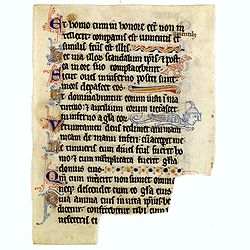 Et homo cum in honore esset non in
tellexit comparatus est iumentis
similis factus est illis
ec uia illoꝝ scandalum ipsis & post
ore suo complacebunt
Sicut oues in inferno positi sunt
mors depascet eos
t dominabuntur eorum iusti in ma
tutino & auxilium eorum ueterascet
inferno a gła eorum
Verumtamen deus redimet animam
meam de manu inferi cum acceperit me
e timueris cum diues factus fuerit ho
mo & cum multiplicata fuerit gła
domus eius
Qm cum interierit non sumet omnia
neqꝫ descendet cum eo gła eius
Quia anima eius in uita ipsius be
dicetur confitebitur tibi cum
nefeceris ei